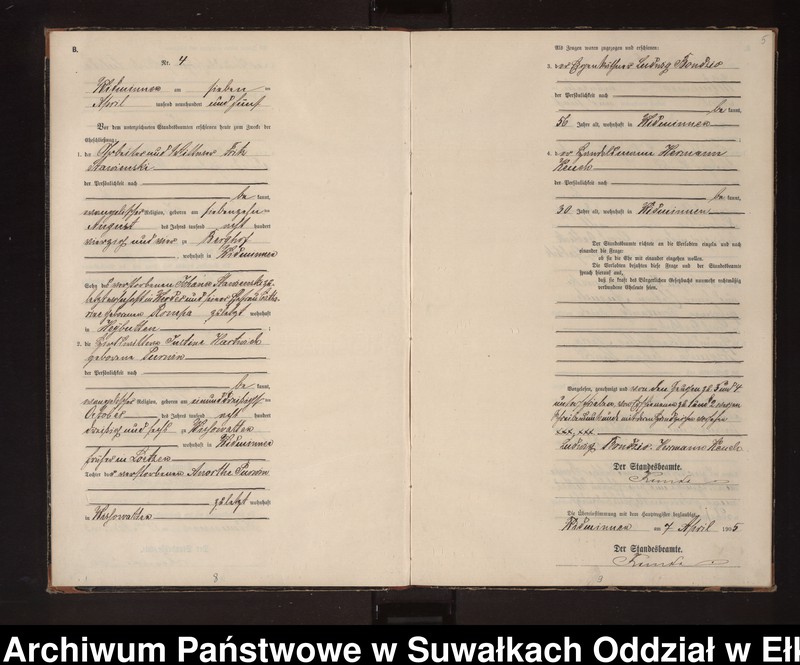 B.
Nr. 4
Widminnen am sieben
April tausend neunhundert und fünf
Vor dem unterzeichneten Standesbeamten erschienen heute zum Zwecke der
Eheschließung:
1. der Arbeiter und Wittwer Fritz
der Persönlichkeit nach
be kannt,
evangelischer Religion, geboren am siebenzehn
August des Jahres tausend acht hundert
vierzig und vier zu Berghof
, wohnhaft in Widminnen
Sohn des verstorbenen Johann
zuletzt wohnhaft in und seiner Ehefrau
geborene zuletzt wohnhaft
in
2. die Justine
geborene
der Persönlichkeit nach
be kannt,
evangelischer Religion, geboren am einunddreißigsten
October des Jahres tausend acht hundert
dreißig und sechs zu Wessowatten
, wohnhaft in Widminnen
früher in Lötzen
Tochter der verstorbenen
zuletzt wohnhaft
in Wessowatten
8
5
Als Zeugen waren zugezogen und erschienen:
3. der Eigenkäthner Ludwig Bondzio
der Persönlichkeit nach
be kannt,
56 Jahre alt, wohnhaft in Widminnen
;
4. der Handelsmann Hermann
der Persönlichkeit nach
be kannt,
30 Jahre alt, wohnhaft in Widminnen
Der Standesbeamte richtete an die Verlobten einzeln und nach
einander die Frage:
ob sie die Ehe mit einander eingehen wollen.
Die Verlobten bejahten diese Frage und der Standesbeamte
sprach hierauf aus,
daß sie kraft des Bürgerlichen Gesetzbuchs nunmehr rechtmäßig
verbundene Eheleute seien.
Vorgelesen, genehmigt und von den Zeugen zu 3 und 4
unterschrieben, von Erschienenen zu 1 und 2 wegen
Schreibensunkunde mit dem Handzeichen versehen
xxx, xxx
Ludwig Bondzio. Hermann
Der Standesbeamte.
Die Übereinstimmung mit dem Hauptregister beglaubigt
Widminnen am 7 April 1905
Der Standesbeamte.
9
Archiwum Państwowe w Suwałkach Oddział w Ełk